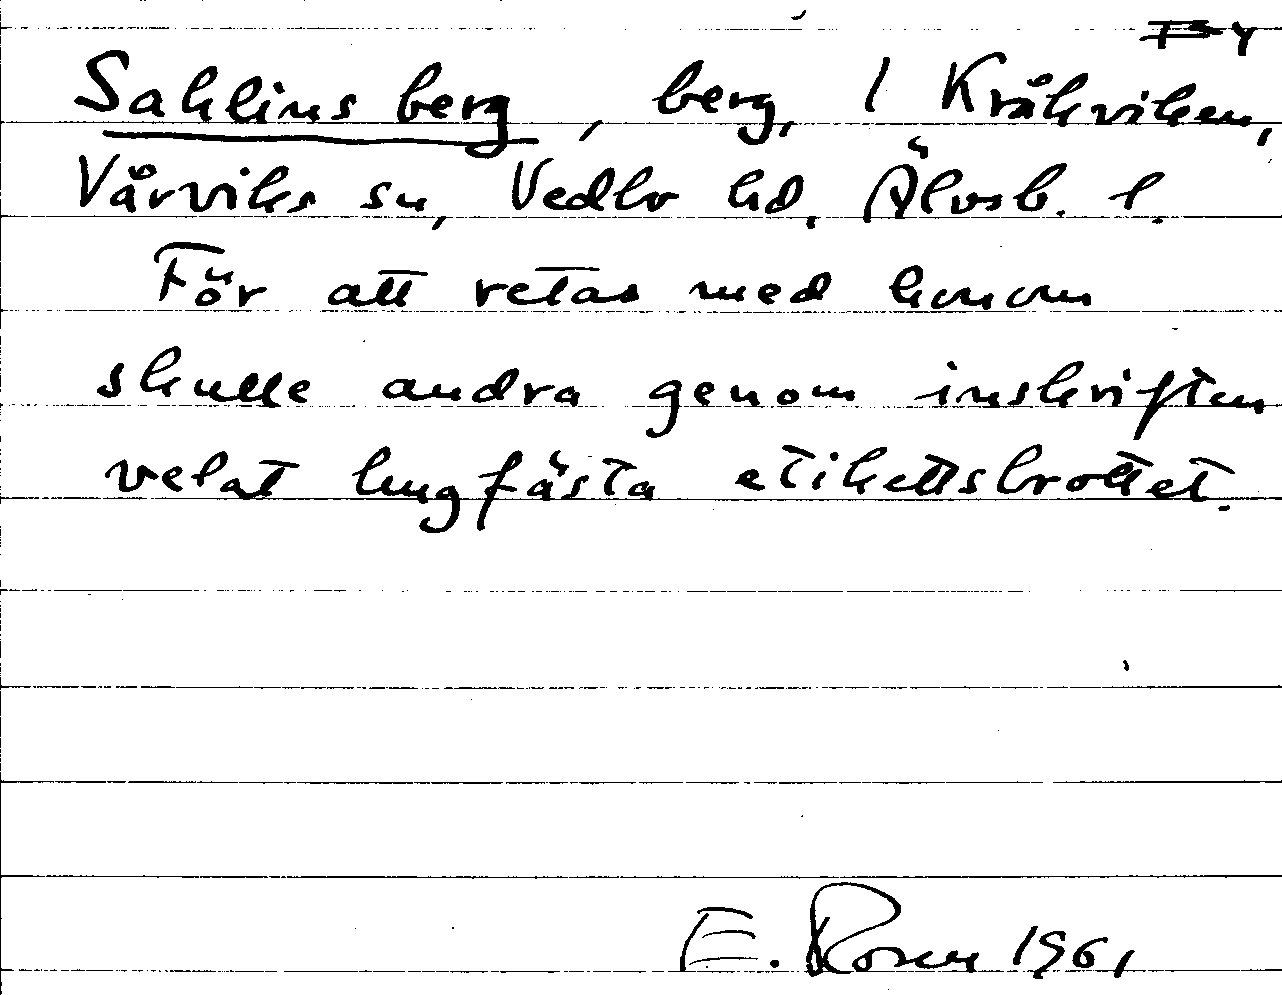 Sahlins berg, berg, / Kråkviken,
Vårviks sn, Vedbo hd, Älvsb. l.
För att retas med honom
skulle andra genom inskriften
velat hugfästa etikettsbrottet.
E. Rosén 1961